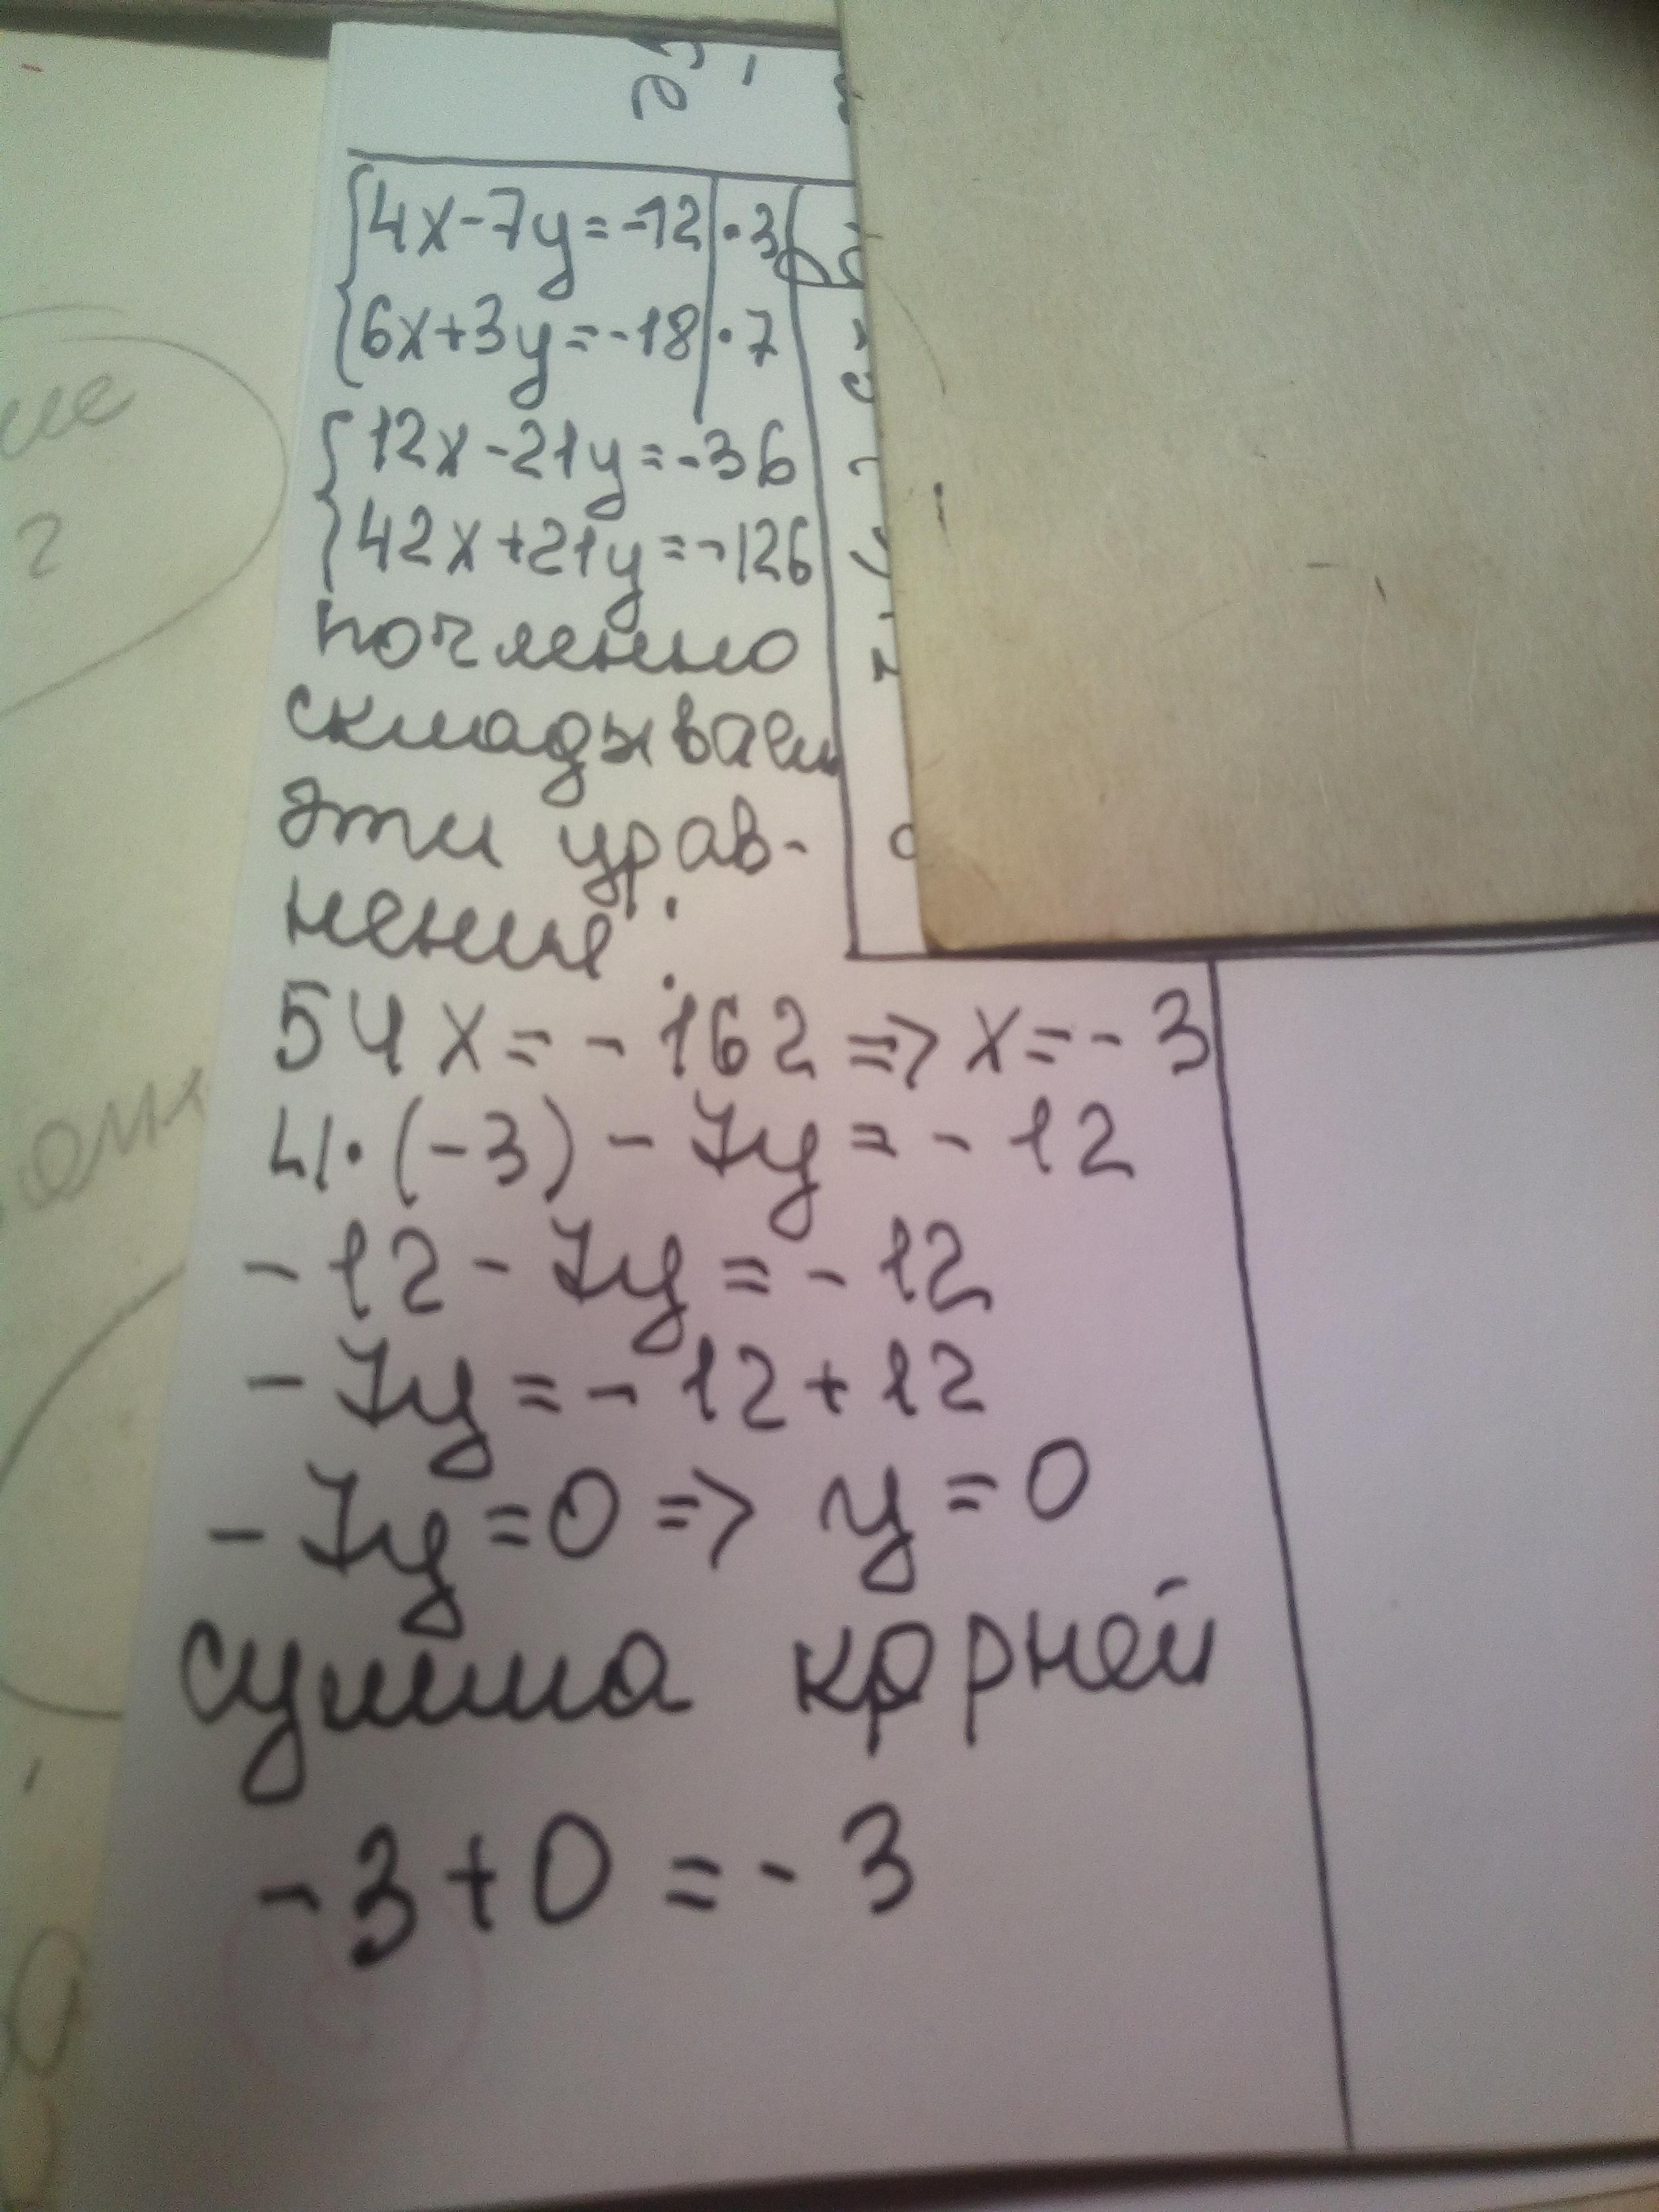 4x-7y=-12|·3
6x+3y=-18|·7
12x-21y=-36
42x+21y=-126
почленно
складываем
эти урав-
нение:
54x=-162=>x=-3
4·(-3)-7y=-12
-12-7y=-12
-7y=-12+12
-7y=0=>y=0
сумма корней
-3+0=-3